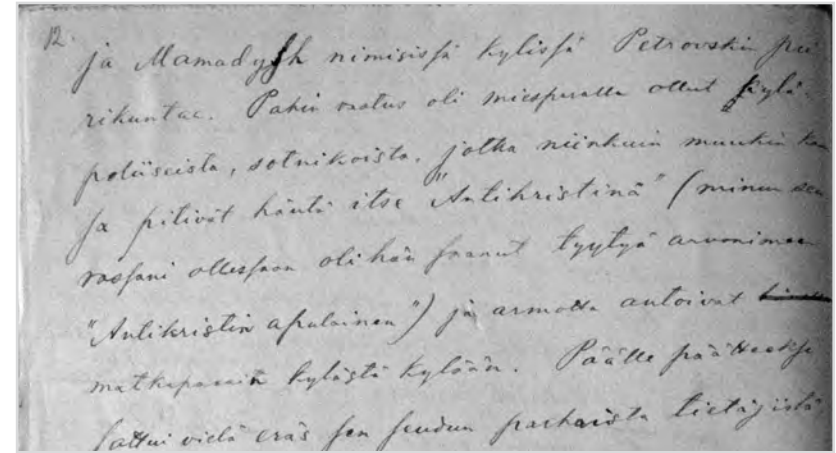 12.
ja Mamadysh nimisissä kylissä Petrovskin pii
rikuntaa. Pahin vastus oli miesparalla ollut kylä-
poliiseista, sotnikoista, jotka niinkuin muukin kan
sa pitivät häntä itse "Antikristinä" (minun seu
rassani ollessaan oli hän saanut tyytyä arvonimeen
"Antikristin apulainen") ja armotta antoivat
matkapassin kylästä kylään. Päälle päätteeksi
sattui vielä eräs sen seudun parhaista tietäjistä